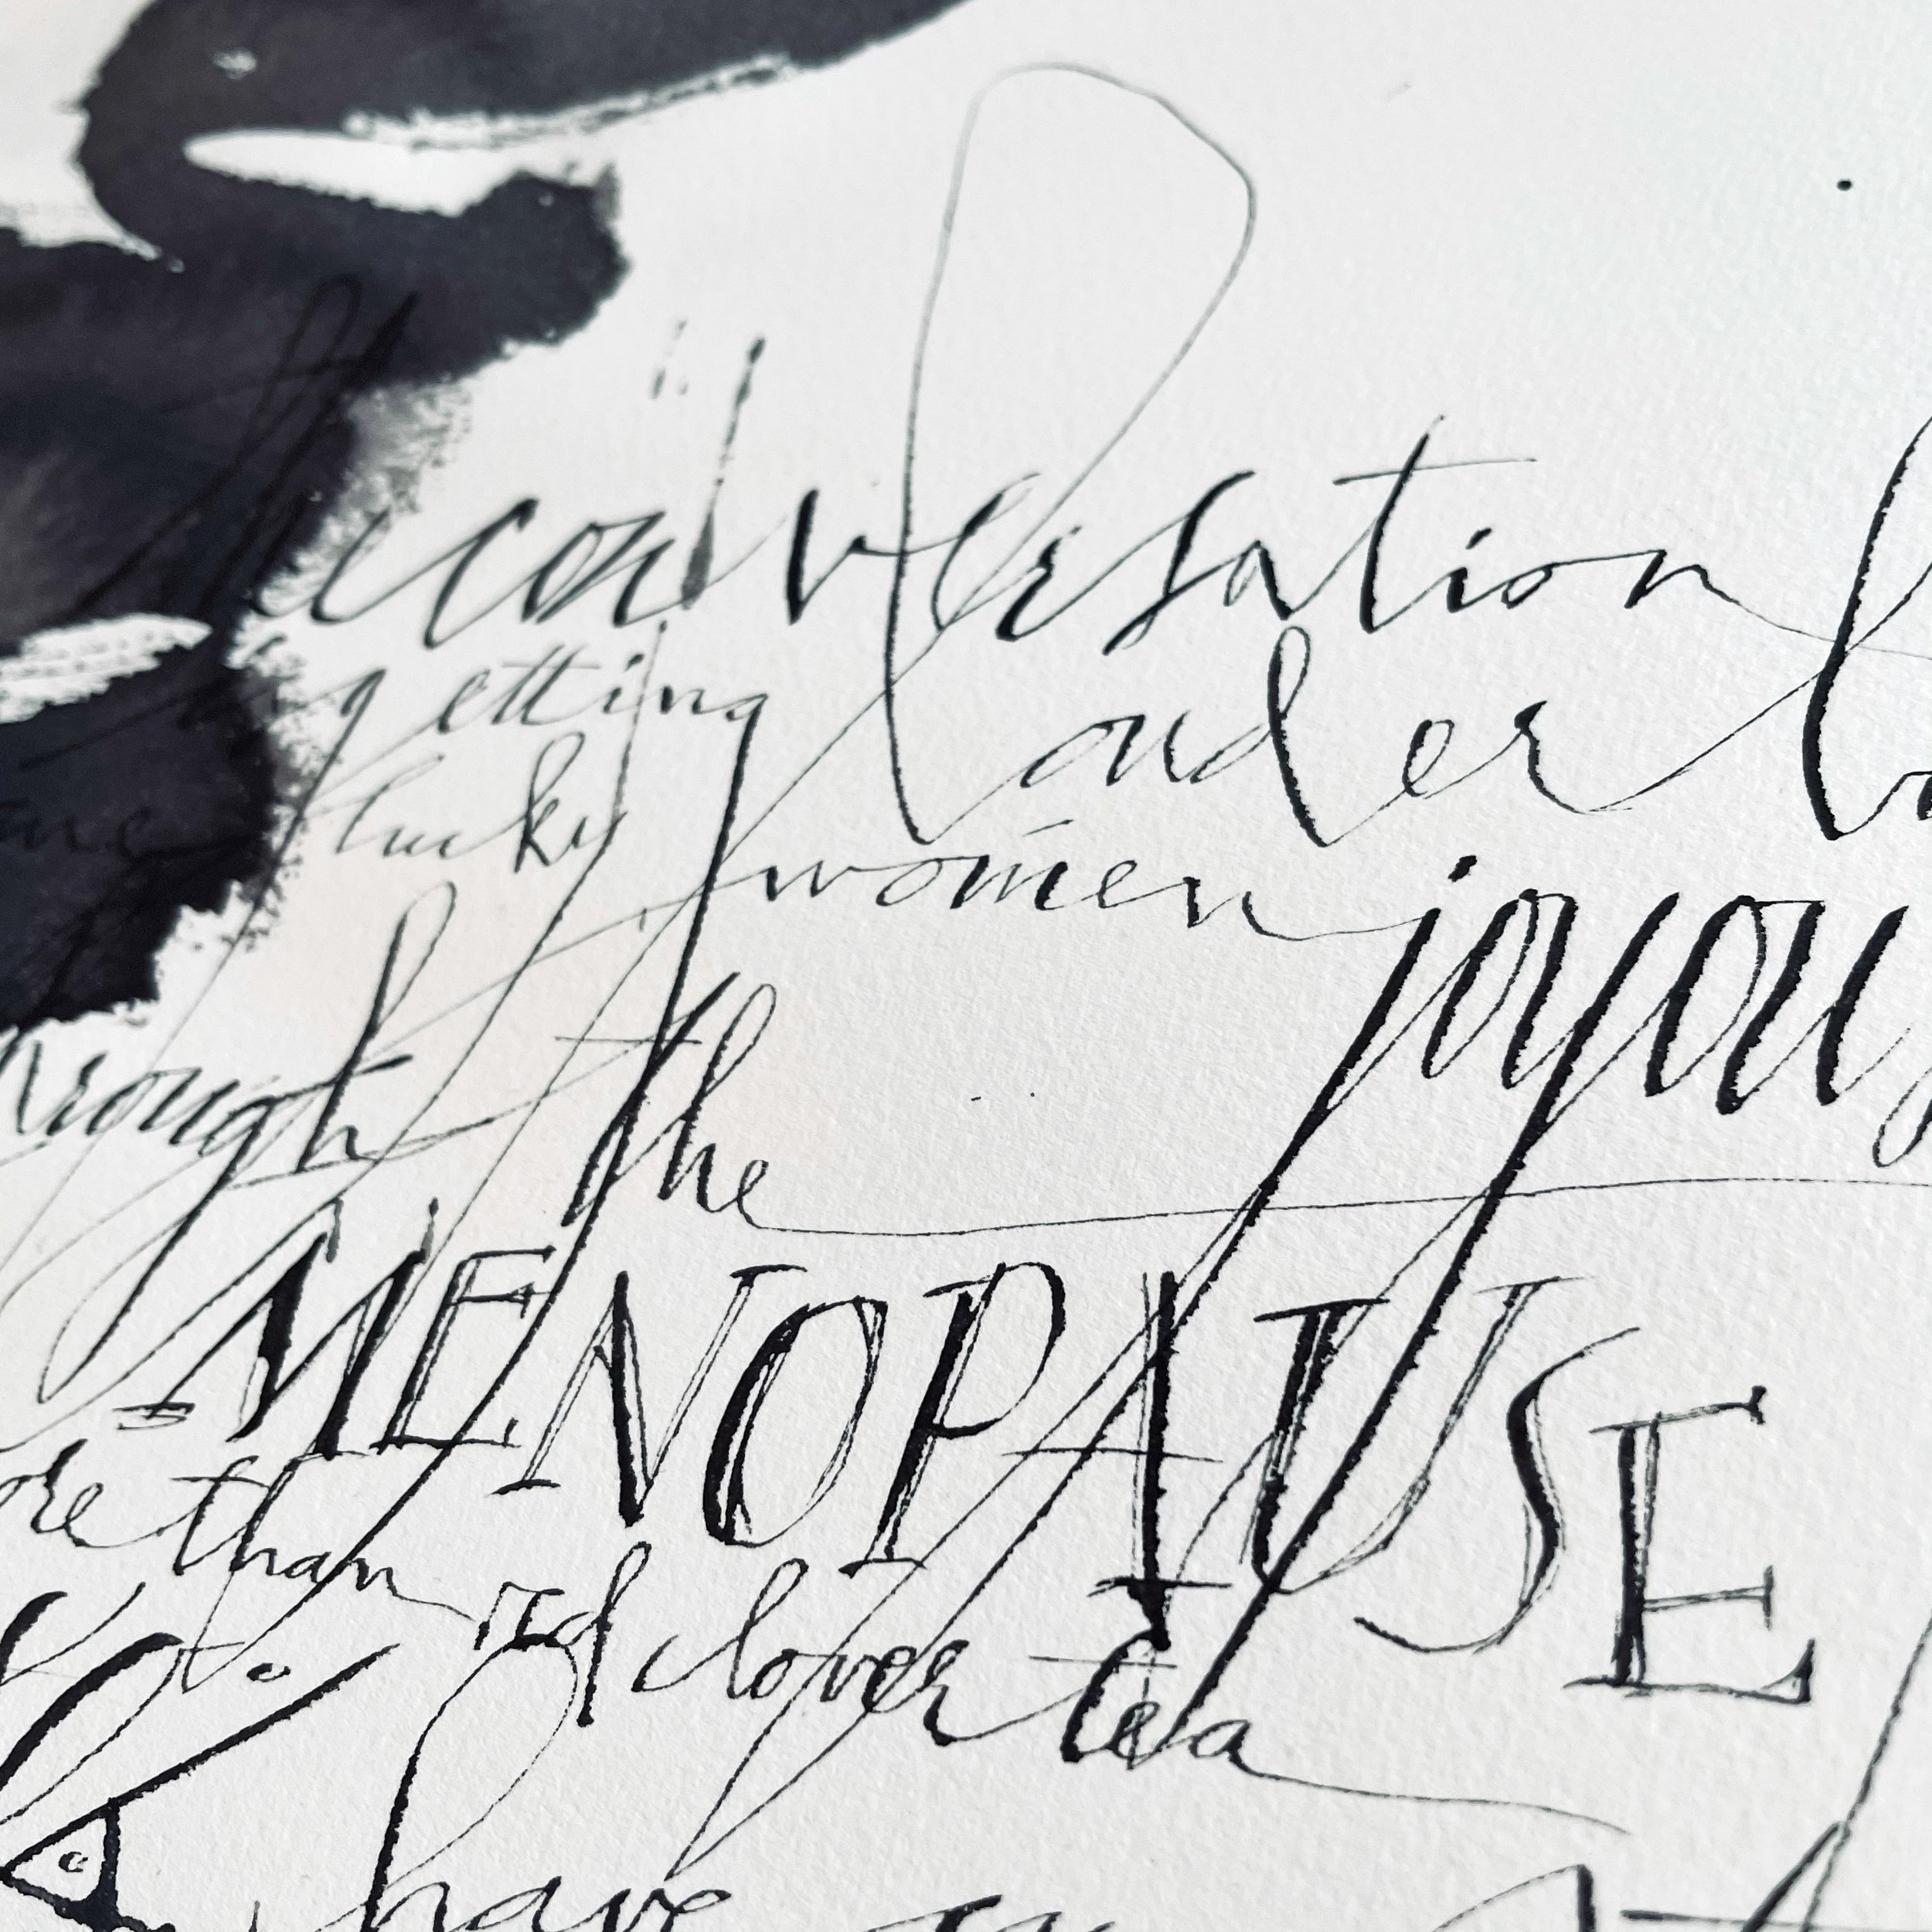 the conversation
getting louder
lucky women joyou
hrough the
MENOPAUSE
ore than red clover tea
have